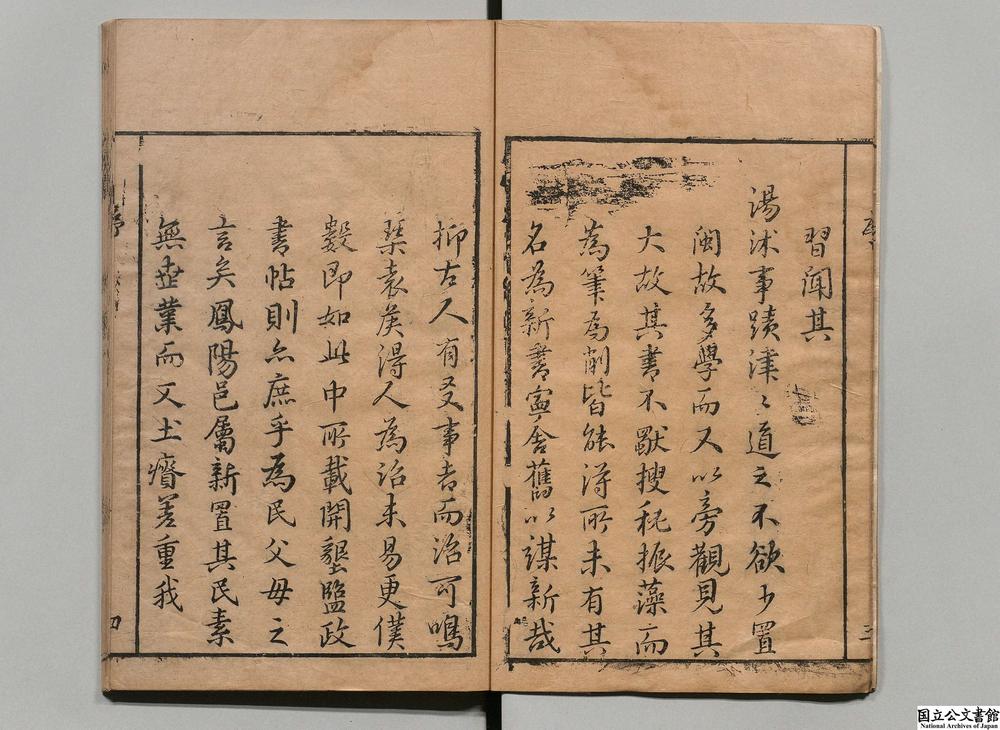 習聞其
湯沐事蹟津〻道之不欲少置
閩故多學而又以旁觀見其
大故其書不厭搜秘振藻而
為筆為削皆能得所未有其
名為新書寧舍舊以謀新哉
抑古人有爻事者而治可鳴
琴袁廣得人為治未易更僕
數即如此中所載開墾監政
書帖則亦庶乎為民父母之
言矣鳳陽邑屬新置其民素
無世業而又土瘠差重我
序
三
四
国立公文書館
National Archives of Japan